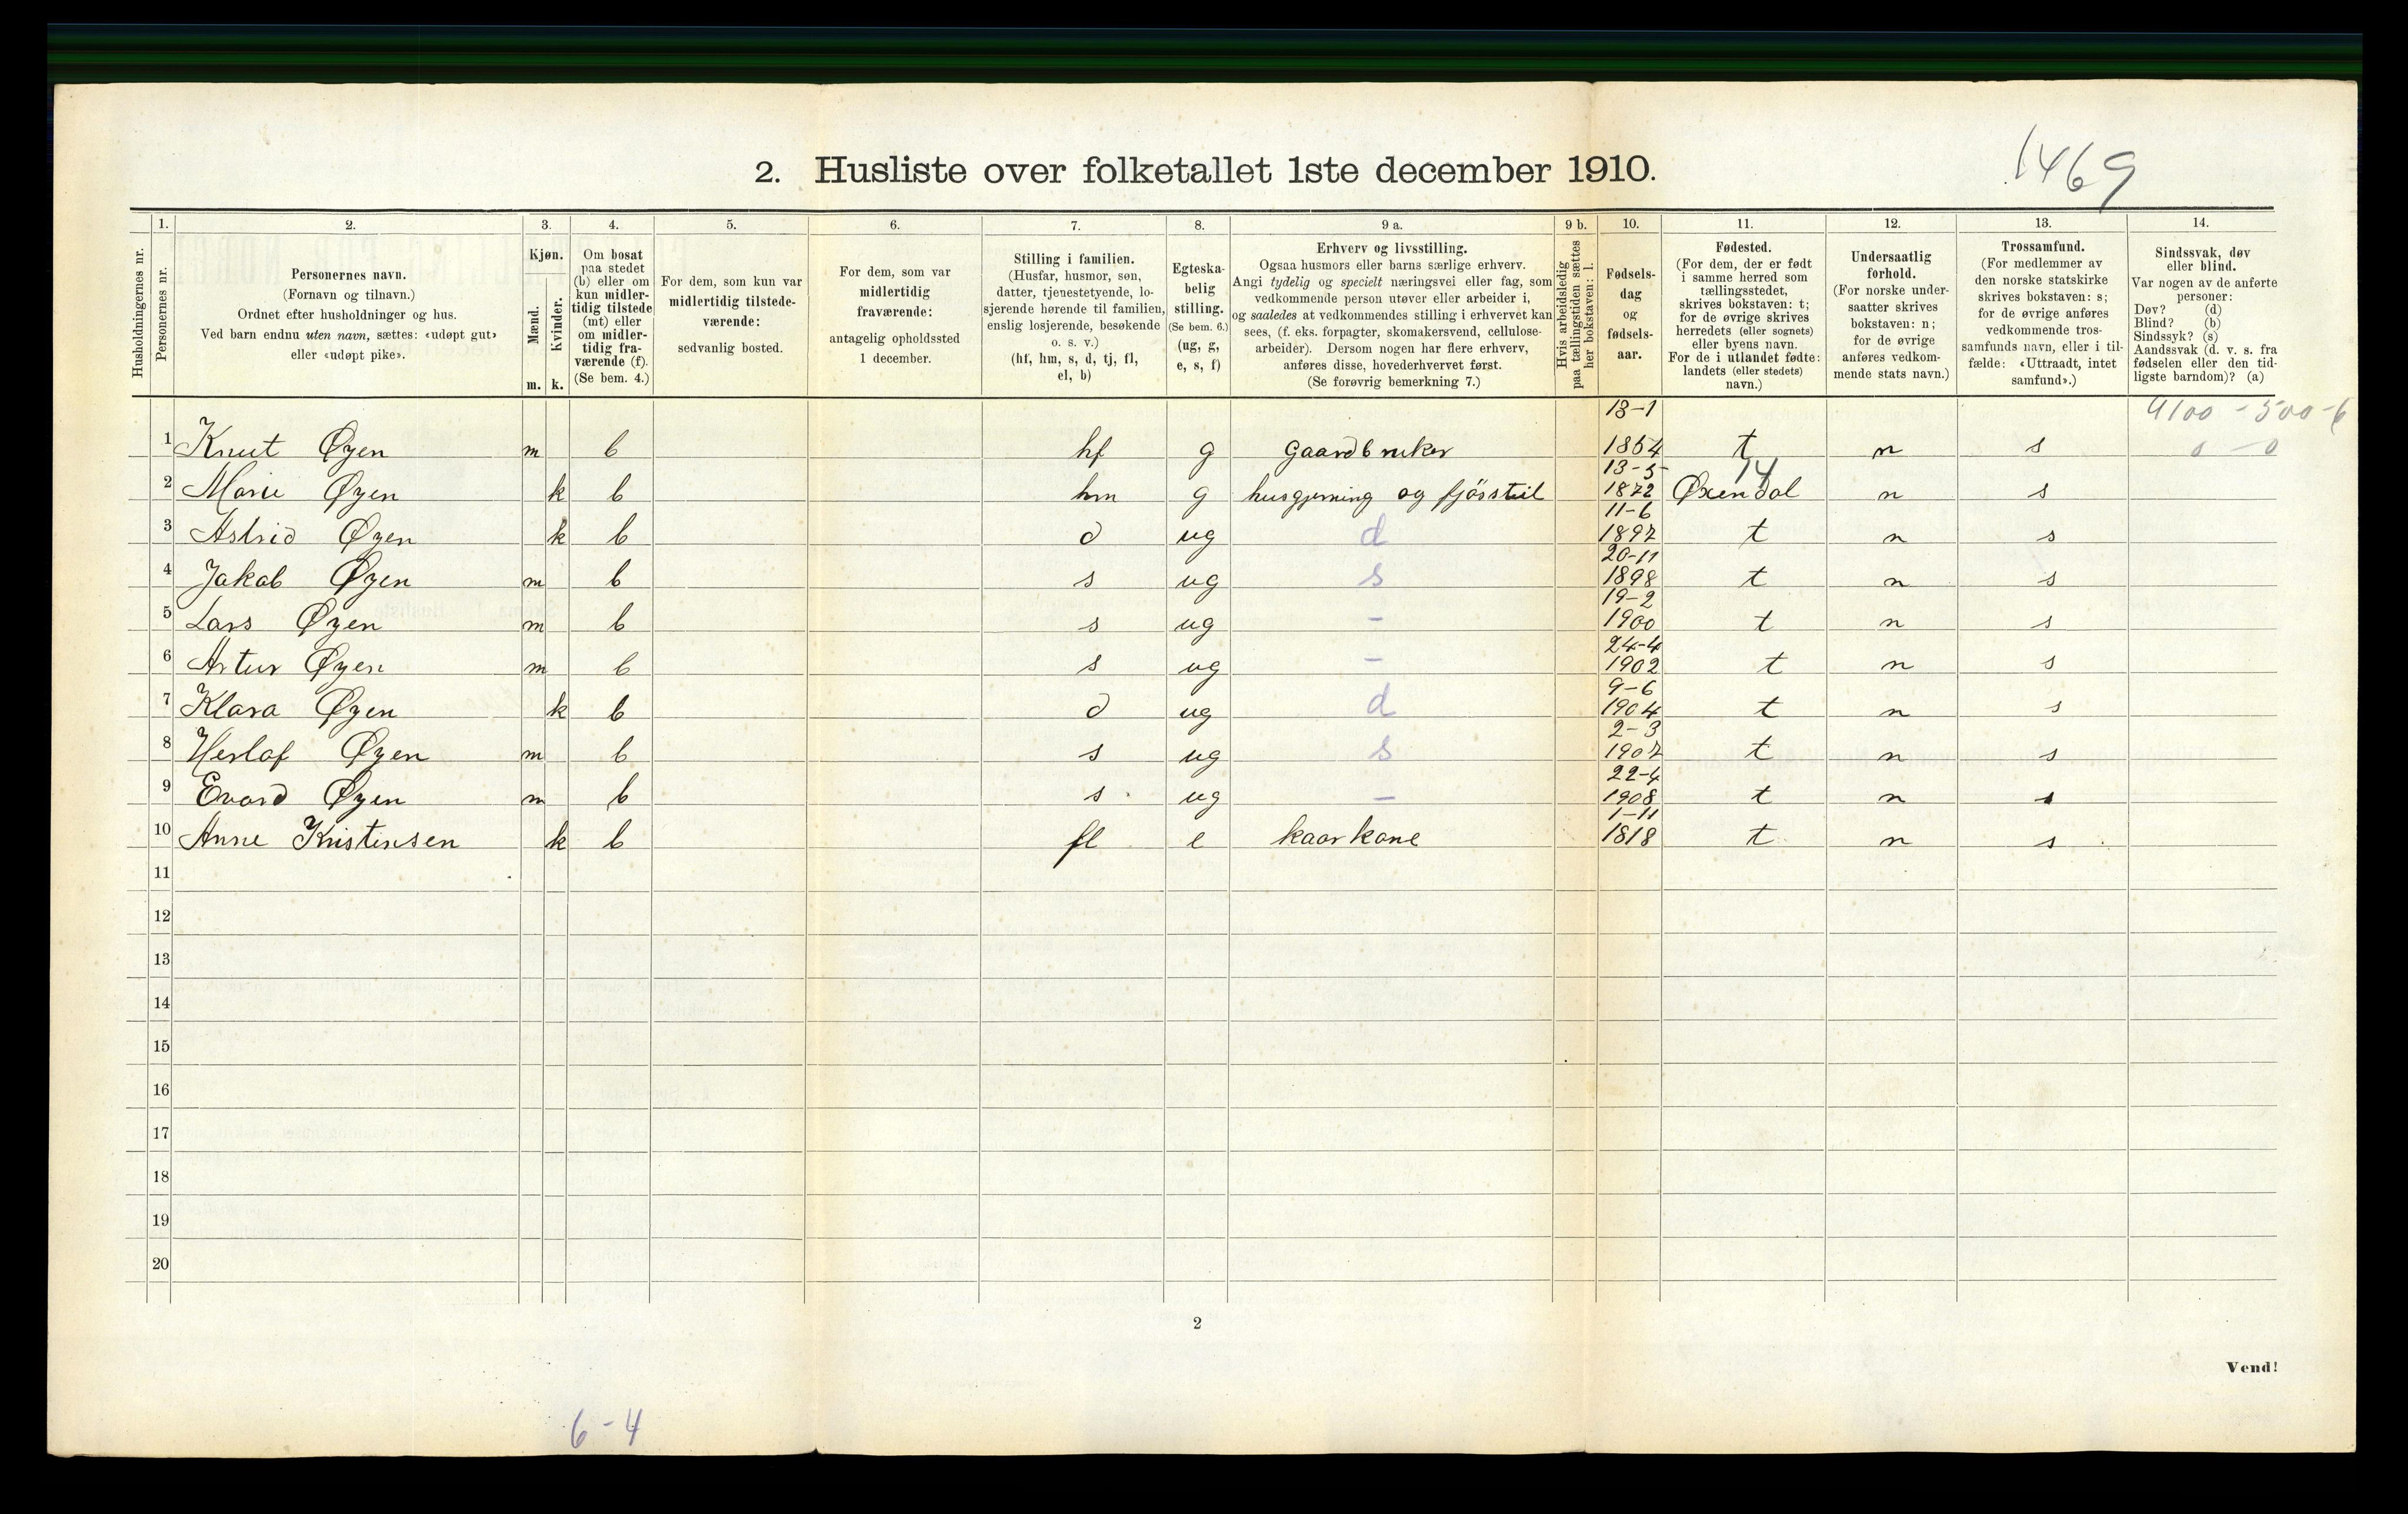 1469
2. Husliste over folketallet 1ste december 1910.
Husholdningernes nr.
1. Personernes nr.
2. Personernes navn.
(Fornavn og tilnavn.)
Ordnet efter husholdninger og hus.
Ved barn endnu uten navn, sættes: «udøpt gut»
eller «udøpt pike».
3. Kjøn.
Mænd. m.
Kvinder. k.
4. Om bosat
paa stedet
(b) eller om
kun midler-
tidig tilstede
(mt) eller
om midler-
tidig fra-
værende (f).
(Se bem. 4.)
5. For dem, som kun var
midlertidig tilstede-
værende:
sedvanlig bosted.
6. For dem, som var
midlertidig
fraværende:
antagelig opholdssted
1 december.
7. Stilling i familien.
(Husfar, husmor, søn,
datter, tjenestetyende, lo-
sjerende hørende til familien,
enslig losjerende, besøkende
o. s. v.)
(hf, hm, s, d, tj, fl,
el, b)
8. Egteska-
belig
stilling.
(Se bem. 6.)
(ug, g,
e, s, f)
9 a. Erhverv og livsstilling.
Ogsaa husmors eller barns særlige erhverv.
Angi tydelig og specielt næringsvei eller fag, som
vedkommende person utøver eller arbeider i,
og saaledes at vedkommendes stilling i erhvervet kan
sees, (f. eks. forpagter, skomakersvend, cellulose-
arbeider). Dersom nogen har flere erhverv,
anføres disse, hovederhvervet først.
(Se forøvrig bemerkning 7.)
9 b. Hvis arbeidsledig
paa tællingstiden sættes
her bokstaven: l.
10. Fødsels-
dag
og
fødsels-
aar.
11. Fødested.
(For dem, der er født
i samme herred som
tællingsstedet,
skrives bokstaven: t;
for de øvrige skrives
herredets (eller sognets)
eller byens navn.
For de i utlandet fødte:
landets (eller stedets)
navn.)
12. Undersaatlig
forhold.
(For norske under-
saatter skrives
bokstaven: n;
for de øvrige
anføres vedkom-
mende stats navn.)
13. Trossamfund.
(For medlemmer av
den norske statskirke
skrives bokstaven: s;
for de øvrige anføres
vedkommende tros-
samfunds navn, eller i til-
fælde: «Uttraadt, intet
samfund».)
14. Sindssvak, døv
eller blind.
Var nogen av de anførte
personer:
Døv? (d)
Blind? (b)
Sindssyk? (s)
Aandssvak (d. v. s. fra
fødselen eller den tid-
ligste barndom)? (a)
4100 - 500 - 6
0 - 0
1 Knut Øyen m b hf g gaardbruker 13-1 1864 t n s
2 Marie Øyen k b hm g husgjerning og fjösstel 13-5 1872 Øxendal 14 n s
3 Astrid Øyen k b d ug d 11-6 1897 t n s
4 Jakob Øyen m b s ug s 20-11 1898 t n s
5 Lars Øyen m b s ug - 19-2 1900 t n s
6 Artur Øyen m b s ug - 24-4 1902 t n s
7 Klara Øyen k b d ug d 9-6 1904 t n s
8 Herlof Øyen m b s ug s 2-3 1907 t n s
9 Evard Øyen m b s ug - 22-4 1908 t n s
10 Anne Kristensen k b fl e kaarkone 1-11 1818 t n s
11
12
13
14
15
16
17
18
19
20
2
Vend!
6-4